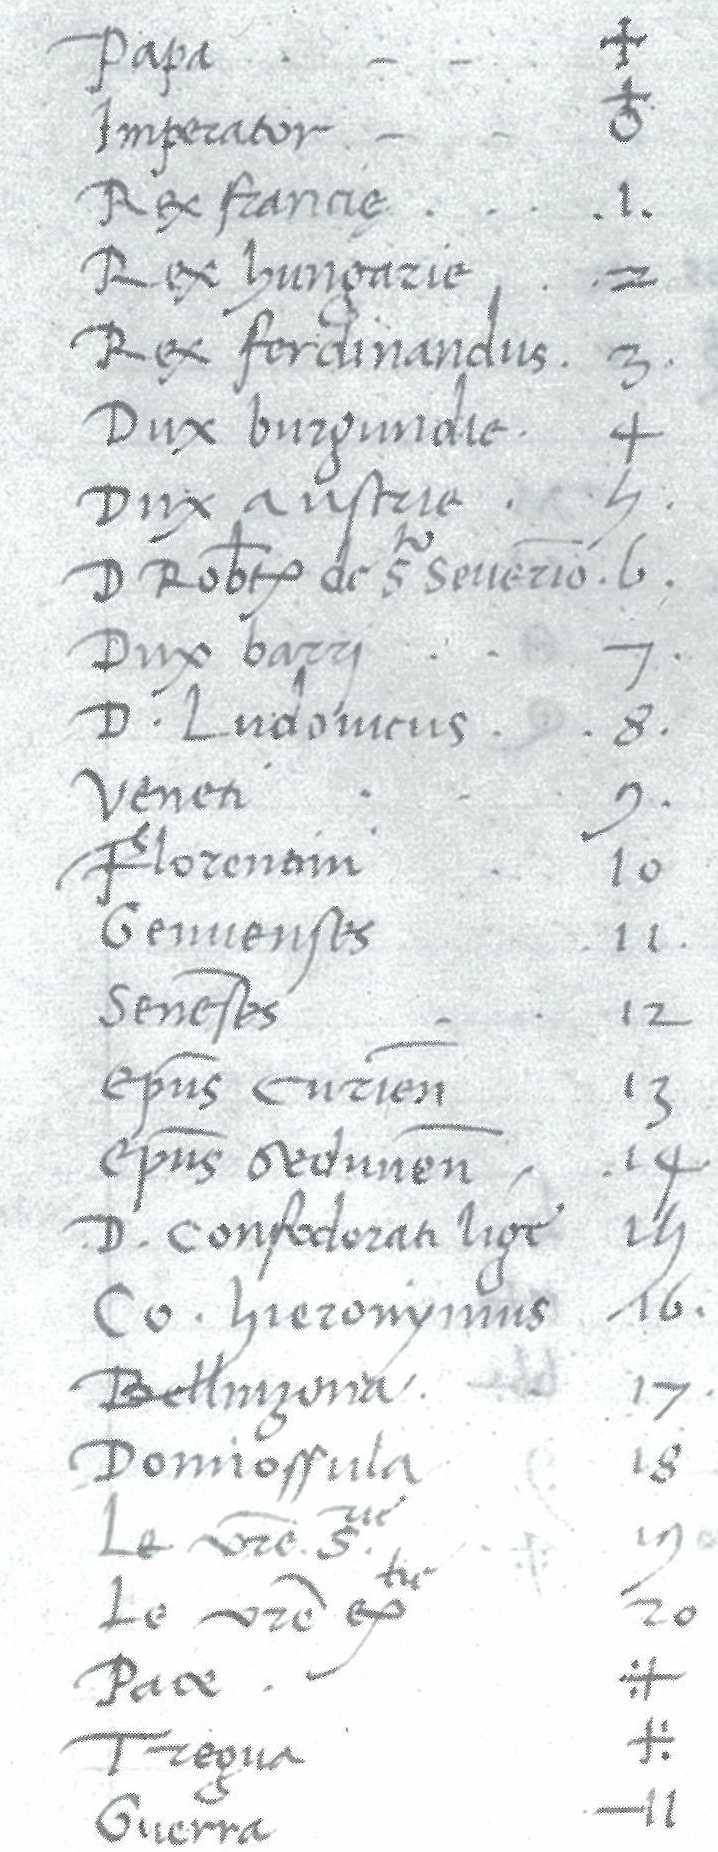 Papa
Imperator
Rex francie .1.
Rex hungarie 2
Rex ferdinandus. 3.
Dux burgundie. 4
Dux austrie . 5.
D Robtus de S.to Seuerio. 6.
Dux barij 7.
D. Ludouicus . 8.
Veneti 9.
Florentini 10
Genuenses 11.
Seneses 12
epus curien 13
epus sedunen .14.
D. confederati lige 15
Co. hieronymus 16.
Bellinzona. 17.
Domiossula 18
Le vre S.rie 19
Le vre ex.tie 20
Pace .
Tregua
Guerra